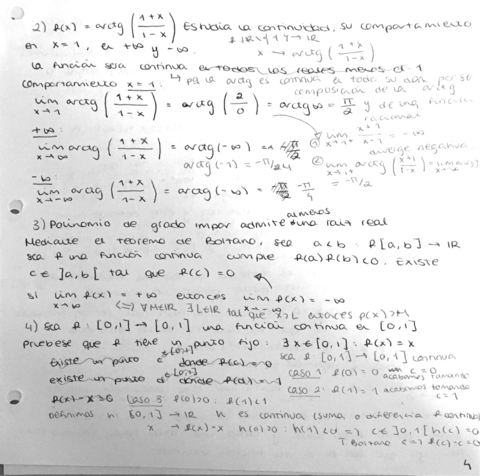 2) f(x) = arctg (1+x / 1-x) Estudia la continuidad, su comportamiento
en x=1, en +∞ y -∞. f: ℝ\{1} → ℝ
x → arctg (1+x / 1-x)
la función será continua en todos los reales menos el 1
↳ pq la arctg es continua en todo su dom por ser
composición de la arctg
y de una función
racional
Comportamiento x=1:
lim x→1 arctg (1+x / 1-x) = arctg (2/0) = arctg ∞ = π/2
+∞:
lim x→∞ arctg (1+x / 1-x) = arctg(-∞) =
arctg(-1) = -π/4
① lim x→1+ x+1 / x-1 = -∞
diverge negativa.
② lim x→1+ arctg (x+1 / 1-x) =
= -π/2
-∞:
lim x→-∞ arctg (1+x / 1-x) = arctg(-∞) = -π/4
3) Polinomio de grado impar admite al menos una raíz real
Mediante el teorema de Bolzano, sea a<b : f[a,b] → ℝ
sea f una función continua cumple f(a)f(b)<0. Existe
c ∈ ]a,b[ tal que f(c)=0
si lim x→∞ f(x) = +∞ entonces lim x→-∞ f(x) = -∞
⟺ ∀M∈ℝ ∃L∈ℝ tal que x>L entonces p(x)>M
4) sea f: [0,1] → [0,1] una función continua en [0,1]
Pruébese que f tiene un punto fijo: ∃x∈[0,1]: f(x)=x
Existe un punto c∈[0,1] donde f(c)=0
sea f [0,1] → [0,1] continua
existe un punto d∈[0,1] donde f(d)=1
Caso 1: f(0)=0 c=0
acabamos tomando
Caso 2: f(1)=1 acabamos tomando
c=1
f(x)-x=0 Caso 3: f(0)>0 : f(1)<1
Definimos h: [0,1] → ℝ h es continua (suma o diferencia f continuas)
x → f(x)-x h(0)>0 : h(1)<0 => c∈]0,1[ h(c)=0
T Bolzano <=> f(c)-c=0
4